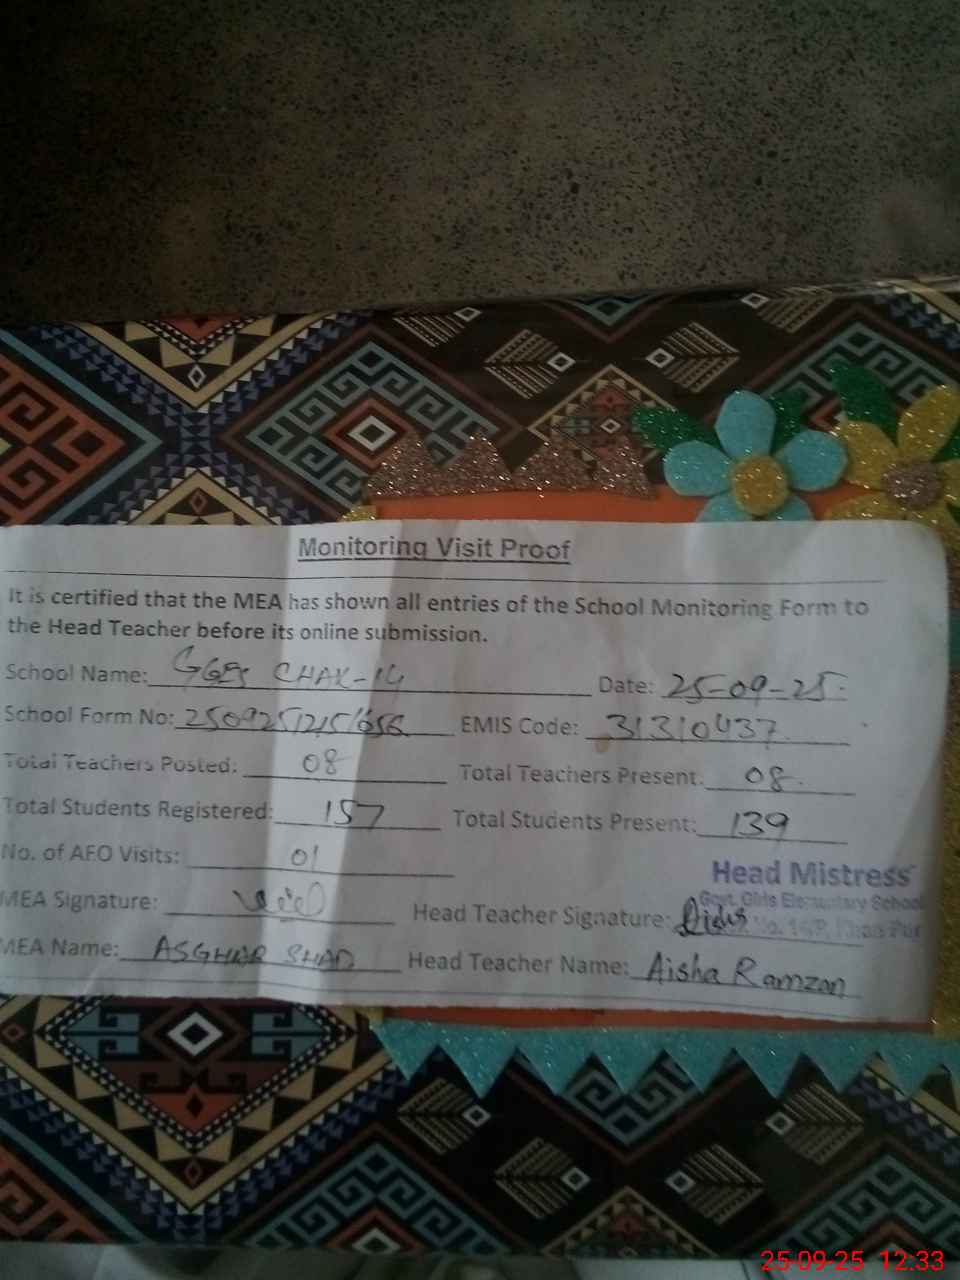 Monitoring Visit Proof
It is certified that the MEA has shown all entries of the School Monitoring Form to
the Head Teacher before its online submission.
School Name: GGES CHAK-14 Date: 25-09-25
School Form No: EMIS Code: 31310437
Total Teachers Posted: 08 Total Teachers Present: 08
Total Students Registered: 157 Total Students Present: 139
No. of AEO Visits: 01
Head Mistress
Govt. Girls Elementary School
MEA Signature: Head Teacher Signature: Aisha
No. 14/P, Khan Pur
MEA Name: ASGHAR Head Teacher Name: Aisha Ramzan
25-09-25 12:33